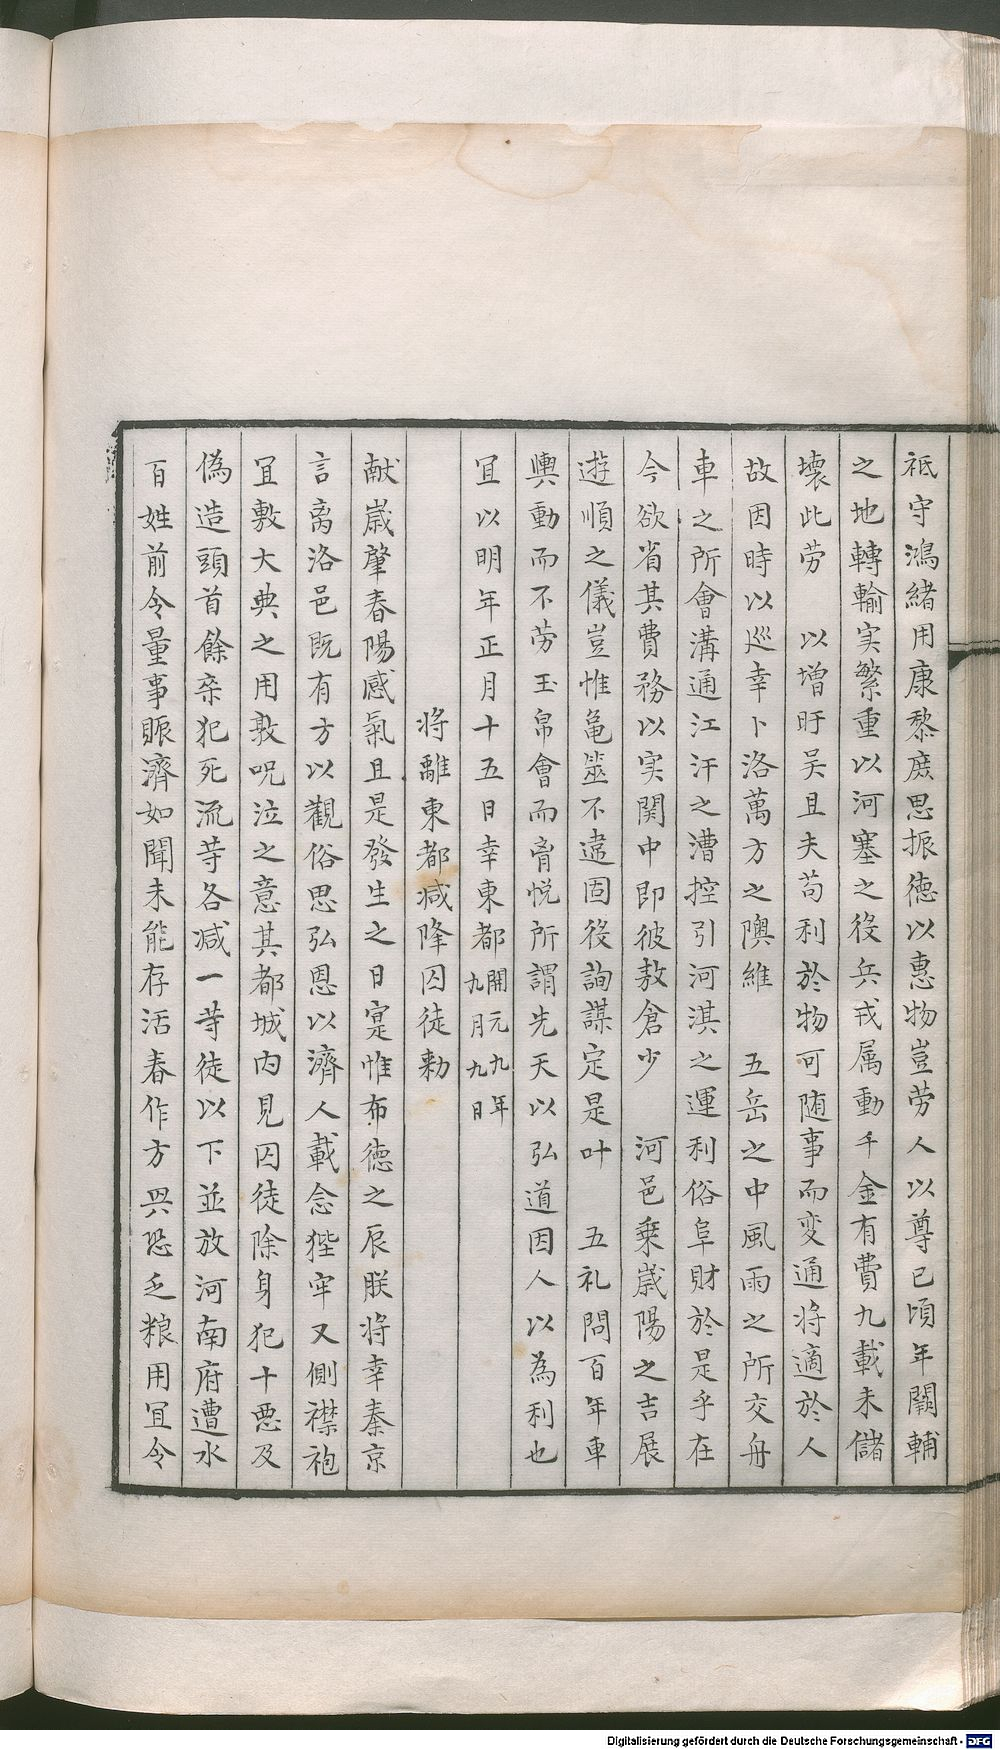 祗守鴻緒用康黎庶思振徳以惠物豈劳人以尊已頃年闗輔
之地轉輸実繁重以河塞之役兵戎属動千金有費九載未儲
壞此劳　以增旰吴且夫苟利於物可随事而変通将適於人
故因時以巡幸卜洛萬方之隩維　五岳之中風雨之所交舟
車之所會溝通江汗之漕控引河淇之運利俗阜財於是乎在
今欲省其費務以実関中即彼敖倉少　河邑乗歲陽之吉展
遊順之儀豈惟亀筮不違固役詢謀定是叶　五礼問百年車
輿動而不劳玉帛會而胥悦所謂先天以弘道因人以為利也
冝以明年正月十五日幸東都開元九年九月九日
将離東都减降囚徒勅
献歲肇春陽感氣且是發生之日寔惟布徳之辰朕将幸秦京
言离洛邑既有方以觀俗思弘恩以濟人載念狴牢又側襟袍
冝敷大典之用敦呪泣之意其都城内見囚徒除身犯十悪及
偽造頭首餘杂犯死流等各减一等徒以下並放河南府遭水
百姓前令量事賑濟如聞未能存活春作方興恐乏粮用冝令
Digitalisierung gefördert durch die Deutsche Forschungsgemeinschaft - DFG